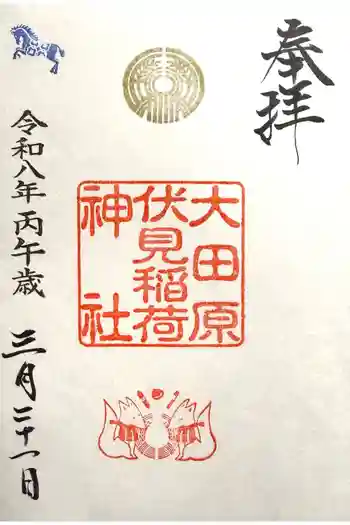 奉拝
大田原
伏見稲荷
神社
令和八年丙午歳
三月二十一日